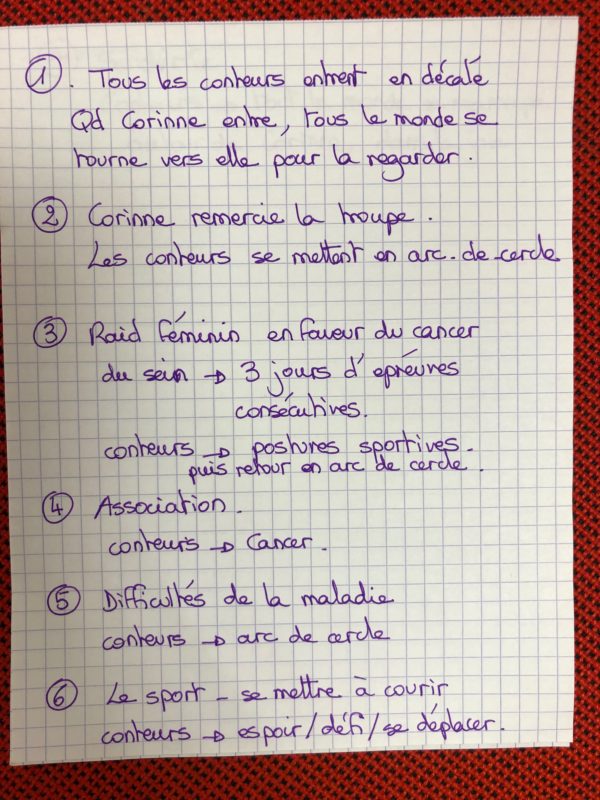 ① . Tous les conteurs entrent en décalé
Qd Corinne entre, tous le monde se
tourne vers elle pour la regarder.
② Corinne remercie la troupe.
Les conteurs se mettent en arc-de-cercle
③ Raid féminin en faveur du cancer
du sein → 3 jours d'epréuves
consécutives.
conteurs → postures sportives.
puis retour en arc de cercle.
④ Association.
conteurs → Cancer.
⑤ Difficultés de la maladie
conteurs → arc de cercle
⑥ Le sport - se mettre à courir
conteurs → espoir/défi/se déplacer.